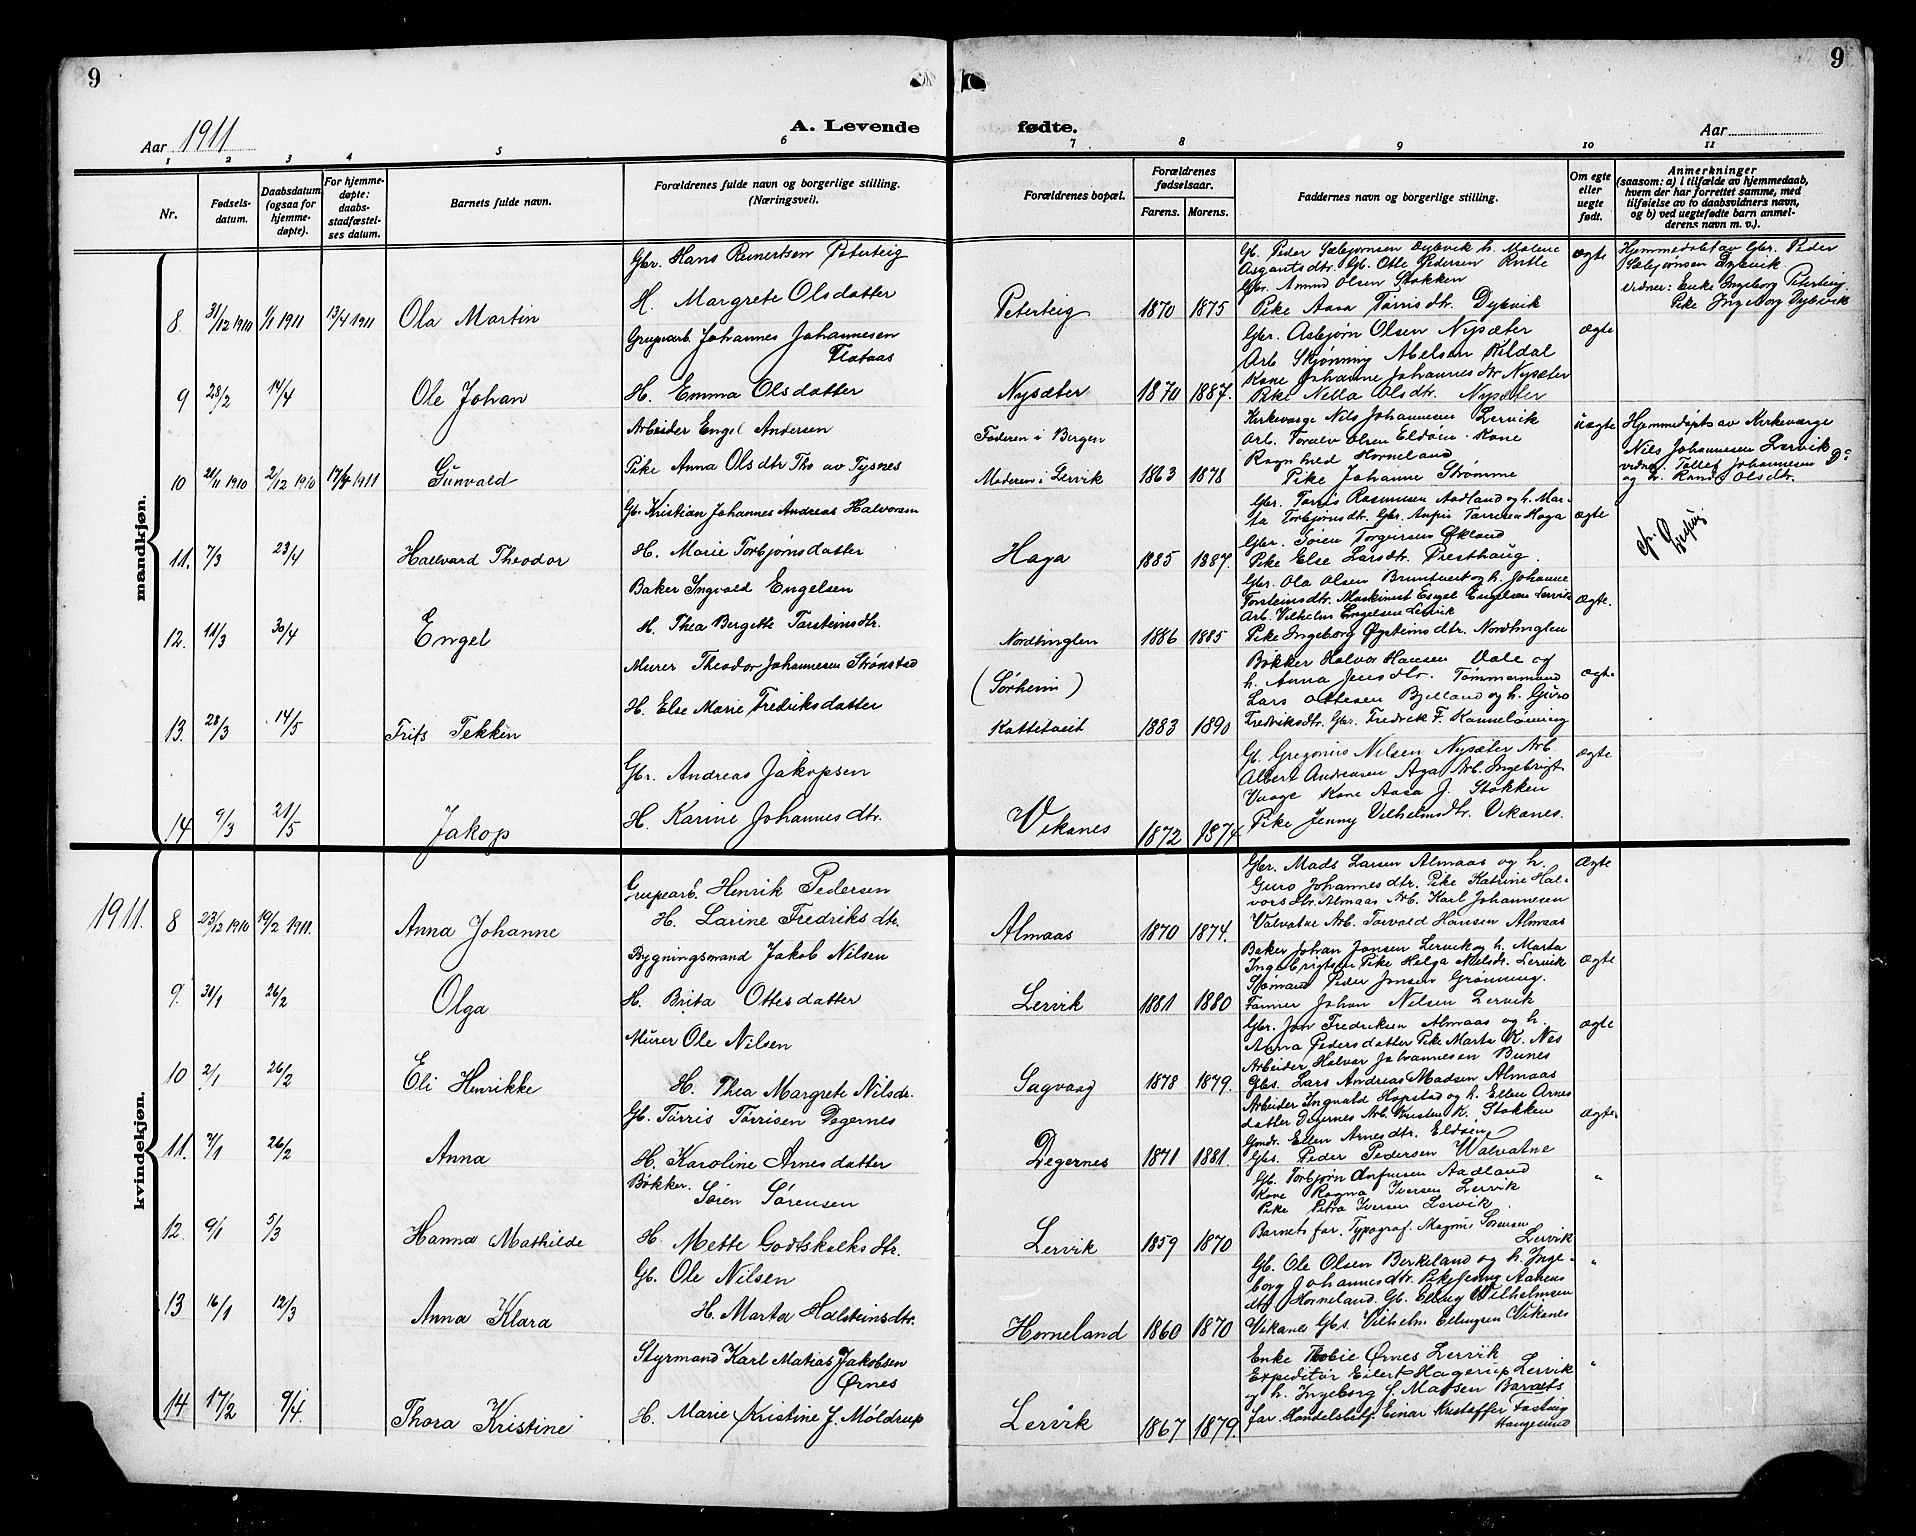 9
9
Aar 1911
A. Levende
fødte.
Aar
1
2
3
4
5
6
7
8
9
10
11
Nr.
Fødsels-
datum.
Daabsdatum
(ogsaa for
hjemme-
døpte).
For hjemme-
døpte:
daabs-
stadfæstel-
ses datum.
Barnets fulde navn.
Forældrenes fulde navn og borgerlige stilling.
(Næringsvei).
Forældrenes bopæl.
Forældrenes
fødselsaar.
Farens.
Morens.
Faddernes navn og borgerlige stilling.
Om egte
eller
uegte
født.
Anmerkninger
(saasom: a) i tilfælde av hjemmedaab,
hvem der har forrettet samme, med
tilføielse av to daabsvidners navn,
og b) ved uegtefødte barn anmel-
derens navn m. v.).
mandkjøn.
8. 31/12 1910 1/1 1911 13/4 1911 Ola Martin
Gbr. Hans Reinertsen Peterteig
H. Margrete Olsdatter
Peterteig 1870 1875
Gb. Peder Sæbjørnsen Dybvik h. Malene
Asgautsdtr. Gb. Otte Pedersen Rutle
Gbr. Amund Olsen Stokken
Pike Aasa Tørrisdtr. Dybvik
ægte
Hjemmedøbt av Gbr. Peder
Sæbjørnsen Dybvik
vidner: Enke Ingeborg Peterteig.
Pike Ingeborg Dybvik
9 28/2 14/4 Ole Johan
Grupearb. Johannes Johannesen
Flataas
H. Emma Olsdatter
Nysæter 1870 1887.
Gbr. Asbjørn Olsen Nysæter
Arb. Skjønning Nielsen Kildal
Kone Johanne Johannesdtr Nysæter
Pike Nella Olsdtr. Nysæter
ægte
10 21/11 1910 2/12 1910 17/4 1911 Gunvald
Arbeider Engel Andersen
Pike Anna Olsdtr Ths av Tysnes
Faderen i Bergen
Moderen i Lervik 1863 1878
Kirkeværge Nils Johannesen Lervik
Arb. Toralv Olsen Eldøen. Kone
Ragnhild Horneland
Pike Johanne Strømme
uægte
Hjemmedøpt av Kirkeværge
Nils Johannesen Lervik
vidner: Tollef Johannesen Do
og h. Randi Olsdtr.
11. 7/3 23/4 Halvard Theodor
Gb. Kristian Johannes Andreas Halvorsen
H. Marie Torbjørnsdatter
Haga 1885 1887.
Gbr. Tørris Rasmusen Aadland og h. Mar-
ta Torbjørnsdtr. Gbr. Anfin Tørresen Haga
Gbr. Søren Torgersen Økland
Pike Else Larsdtr. Presthaug
ægte
12. 11/3 30/4 Engel
Baker Ingvald Engelsen
H. Thea Bergette Torsteinsdtr.
Nordtinglen 1886 1885
Gbr. Ola Olsen Bruntveit og h. Johanne
Torsteinsdtr. Maskinist Engel Engelsen Lervik
Arb. Vilhelm Engelsen Lervik
Pike Ingeborg Øysteinsdtr. Nordtinglen
ægte.
13. 28/3 14/5 Frits Tekkin
Murer Theodor Johannesen Strønstad
H. Else Marie Fredriksdatter
(Sørheim)
Kattetveit 1883 1890
Bøkker Halvor Hansen Vale og
h. Anna Jensdtr. Tømmermand
Lars Ottesen Bjelland og h. Guro
Fredriksdtr. Gbr. Fredrik F. Kanneløning
ægte
14 9/3 21/5 Jakop
Gbr. Andreas Jakopsen
H. Karine Johannesdtr.
Vikanes 1872 1874.
Gb. Gregorius Nilsen Nysæter Arb.
Albert Andreasen Aga Arb. Ingebrigt
Vaage Kone Aasa J. Stokken
Pike Jenny Vilhelmsdtr. Vikanes.
ægte
1911.
kvindekjøn.
8 23/12 1910 19/2 1911. Anna Johanne
Grupearb. Henrik Pedersen
H. Larine Fredriksdtr.
Almaas 1870 1874.
Gbr. Mads Larsen Almaas og h.
Guro Johannesdtr. Pike Katrine Hal-
vorsdtr. Almaas Arb. Karl Johannesen
Valvatne Arb. Torvald Hansen Almaas
ægte
9. 31/1 26/2 Olga
Bygningsmand Jakob Nilsen
H. Brita Ottesdatter
Lervik 1881 1880
Baker Johan Jonsen Lervik og h. Marta
Ingebrigtsdtr Pike Helga Nilsdtr. Lervik
Sjømand Peder Jonsen Grønning.
Farmer Johan Nilsen Lervik
ægte
10 2/1 26/2 Eli Henrikke
Murer Ole Nilsen
H. Thea Margrete Nilsdr.
Sagvaag 1878 1879.
Gbr. Jon Fredriksen Almaas og h.
Anna Pedersdatter Pike Marta K. Nes
Arbeider Halvor Johannesen Bunes
Gbs. Lars Andreas Madsen Almaas
ægte
11. 7/1 26/2 Anna
Gb. Tørris Tørrisen Degernes
H. Karoline Arnesdatter
Degernes 1871 1881.
Arbeider Ingvald Hopstad og h. Ellen Arnes
datter Degernes Arb. Kristen K. Stokken
Ellen Arnesdtr. Eldøen
Gbs. Peder Pedersen Walvatne
ægte
12. 9/1 5/3 Hanna Mathilde
Bøkker. Søren Sørensen
H. Mette Godtskalksdtr.
Lervik 1859 1870
Gb. Torbjørn Anfinsen Aadland
Kone Ragna Iversen Lervik
Pike Petra Iversen Lervik
Barnets far. Typograf. Magnus Sørensen
Lervik
"
13 16/1 12/3 Anna Klara
Gb. Ole Nilsen
H. Marta Halsteinsdtr.
Horneland 1860 1870
Gb. Ole Olsen Birkeland og h. Inge-
borg Johannesdtr. Pike Jenny Aanens
dtr. Horneland. Gb. Elling Wilhelmsen
Vikanes Gbs. Vilhelm Ellingsen Vikanes
"
14 17/2 9/4. Thora Kristine
Styrmand Karl Matias Jakobsen
Ørnes
H. Marie Kristine J. Møldrup
Lervik 1867 1879.
Enke Ørnes Lervik
Expeditør Eilert Hagerup Lervik
og h. Ingeborg S. Matsen Barnets
far Handelsbetj. Einar Kristoffer
Haugesund
"